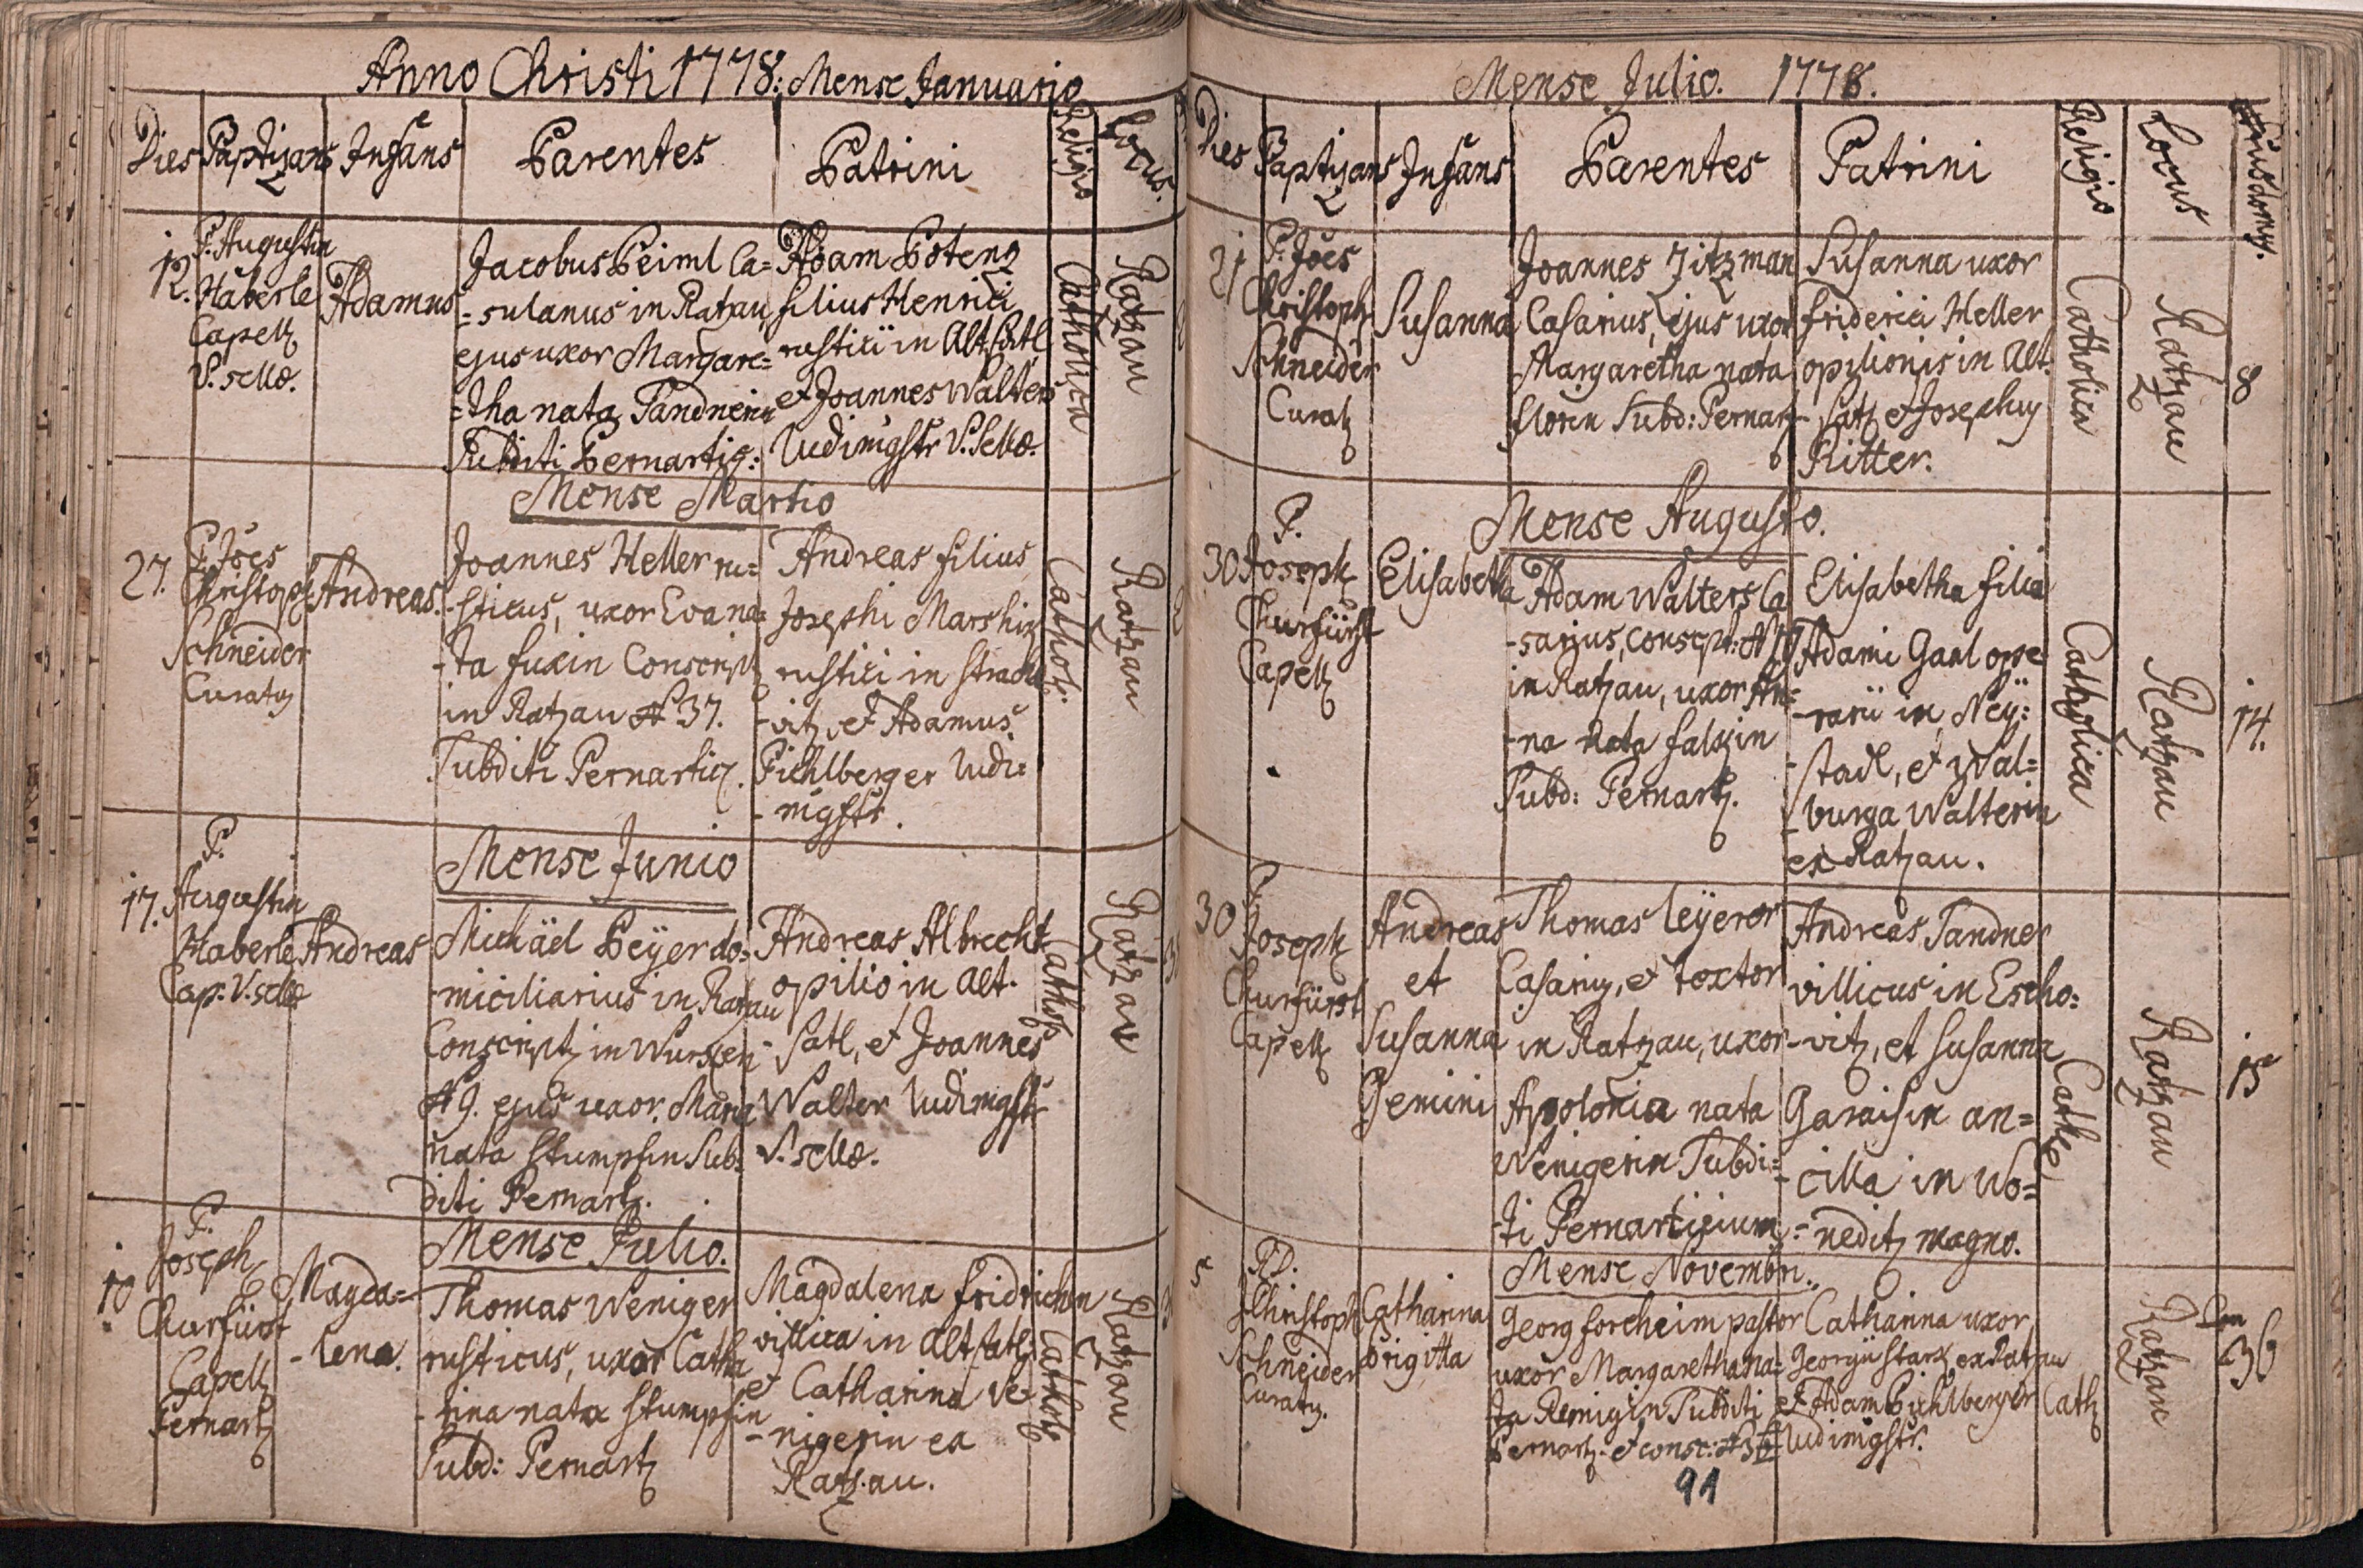 Anno Christi 1778: Mense Januario
Dies Paptizans Infans Parentes Patrini Religio Locus.
12. P. Augustin Haberle Capell V. scllæ.
Adamus
Jacobus Peiml Ca=
=sulanus in Ratzau,
ejus uxor Margare=
=tha nata Tandnerin
Subditi Pernartic:
Adam Poteng
filius Henrici
rustici in Alt Satl
et Joannes Walters
ludimgstr V. Scllæ.
Catholica
Ratzau
Mense Martio
27.
P. Joes
Christoph
Schneider
Curatg
Andreas.
Joannes Heller ru=
-sticus, uxor Eva na=
-ta fuxin Conscript
in Ratzau N 37.
Subditi Pernartic.
Andreas filius
Josephi
rustici in
-vitz, et Adamus
Pichlberger ludi=
-mgstr.
Cathol.
Ratzau
Mense Junio
17.
P.
Augustin
Haberle
Cap. V. scllæ
Andreas
Michäel Peÿer do=
-miciliarius in Ratzau
Conscript in
N 9. ejus uxor Maria
nata Stumpfin Sub=
diti Pernart.
Andreas Albrecht
opilio in Alt-
Satl, et Joannes
Walter ludimgstr
V. scllæ.
Cathol
Ratzau
Mense Julio.
10
P.
Joseph
Churfürst
Capell
Pernart
Magda=
-lena.
Thomas Weniger
rusticus, uxor Catha
-rina nata Stumpfin
Subd: Pernart
Magdalena fridrichin
villica in Alt Satl
et Catharina We-
-nigerin ex
Ratzau.
Cathol
Ratzau
Mense Julio. 1778.
Dies Paptizans Infans Parentes Patrini Religio Locus Nrus domg.
21
P. Joes
Christoph
Schneider
Curat
Susanna
Joannes Zitzman
Casarius, ejus uxor
Margaretha nata
florin Subd: Pernart
Susanna uxor
friderici Heller
opilionis in Alt-
Satl et Josephug
Ritter.
Catholica
Ratzau
8
Mense Augusto.
30
P.
Joseph
Churfürst
Capell
Elisabetha
Adam Walters Ca
-sarius, conscpt: N
in Ratzau, uxor An=
-na nata
Subd: Pernart.
Elisabetha filia
Adami Ganl ope
-rarii in Neÿ=
-stadl, et Wal=
-burga Walterin
ex Ratzau.
Catholica
Ratzau
14.
30
P.
Joseph
Churfürst
Capell
Andreas
et
Susanna
Gemini
Thomas leÿerer
Casariug, et textor
in Ratzau, uxor
Apolonia nata
Wenigerin Subdi=
-ti Pernarticium
Andreas Tandner
villicus in Escho=
-vitz, et Susanna
Garaisin an=
-cilla in Wo=
=neditz magno.
Cath
Ratzau
15
Mense Novembri.
5
PD.
Christoph
Schneider
Curatg.
Catharina
Brigitta
Georg forcheim pastor
uxor Margaretha na=
-ta Remigin Subditi
Pernart: et consc: N 36
Catharina uxor
Georgii Stark ex Ratzau
et Adam Pichlberger
ludimgstr.
Cath
Ratzau
36
91